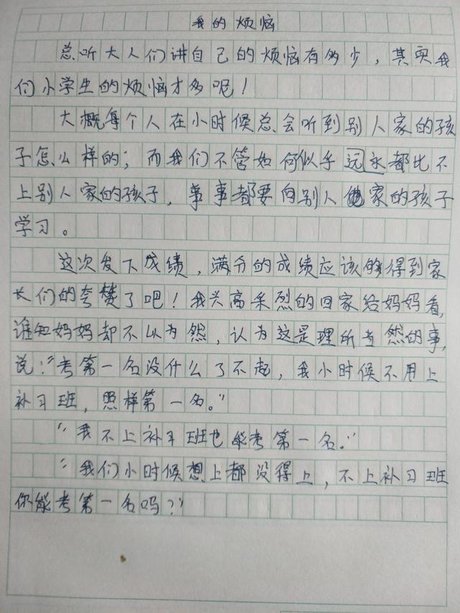 我的烦恼
总听大人们讲自己的烦恼有多少，其实我
们小学生的烦恼才多呢！
大概每个人在小时候总会听到别人家的孩
子怎么样的；而我们不管如何似乎远永都比不
上别人家的孩子，事事都要向别人家的孩子
学习。
这次发下成绩，满分的成绩应该能得到家
长们的夸赞了吧！我兴高采烈的回家给妈妈看，
谁知妈妈却不以为然，认为这是理所当然的事，
说："考第一名没什么了不起，我小时候不用上
补习班，照样第一名。"
"我不上补习班也能考第一名。"
"我们小时候想上都没得上，不上补习班
你能考第一名吗？"